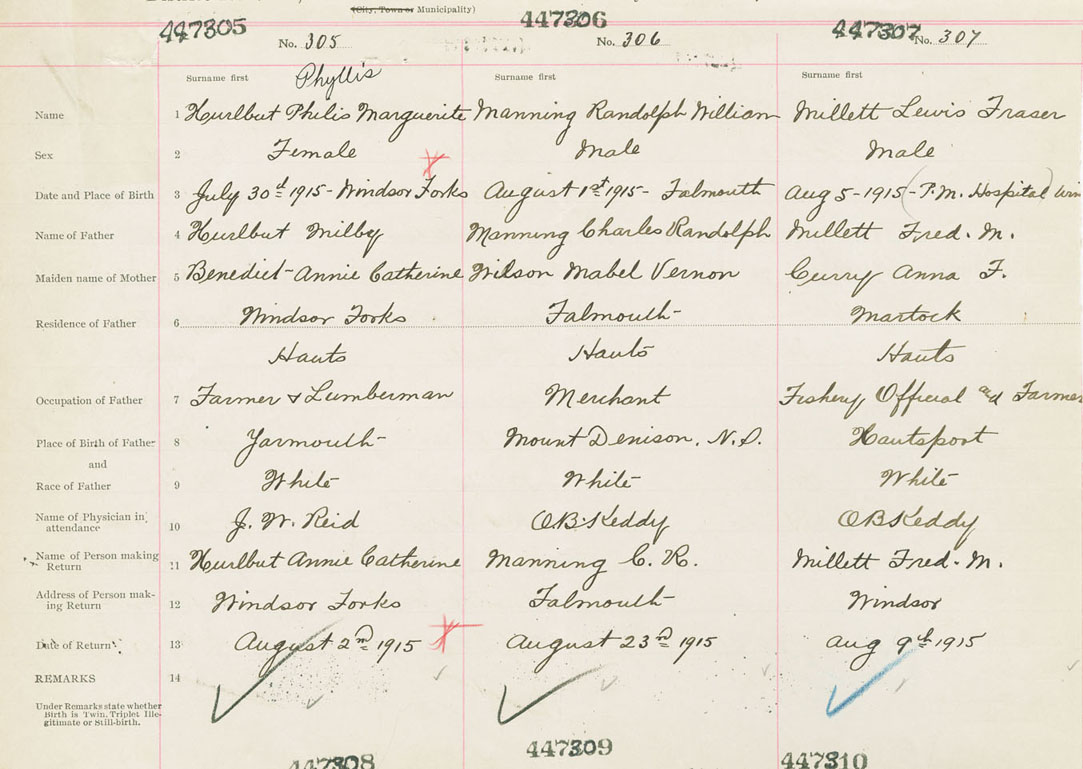 (City, Town or Municipality)
447305 447306 447307
No. 305 No. 306 No. 307
Surname first Phyllis Surname first Surname first
Name 1 Hurlbut Philis Marguerite Manning Randolph William Millett Lewis Fraser
Sex 2 Female Male Male
Date and Place of Birth 3 July 30d 1915 - Windsor Forks August 1st 1915 - Falmouth Aug 5 - 1915 - (P.M. Hospital) Win
Name of Father 4 Hurlbut Milby Manning Charles Randolph Millett Fred. M.
Maiden name of Mother 5 Benedict Annie Catherine Wilson Mabel Vernon Curry Anna F.
Residence of Father 6 Windsor Forks Falmouth Martock
Hants Hants Hants
Occupation of Father 7 Farmer & Lumberman Merchant Fishery Official and Farmer
Place of Birth of Father 8 Yarmouth Mount Denison, N.S. Hantsport
and
Race of Father 9 White White White
Name of Physician in attendance 10 J. W. Reid O B Keddy O B Keddy
Name of Person making Return 11 Hurlbut Annie Catherine Manning C. R. Millett Fred. M.
Address of Person mak-ing Return 12 Windsor Forks Falmouth Windsor
Date of Return 13 August 2nd 1915 August 23rd 1915 Aug 9th 1915
REMARKS 14
Under Remarks state whether
Birth is Twin, Triplet Ille-
gitimate or Still-birth.
447308 447309 447310